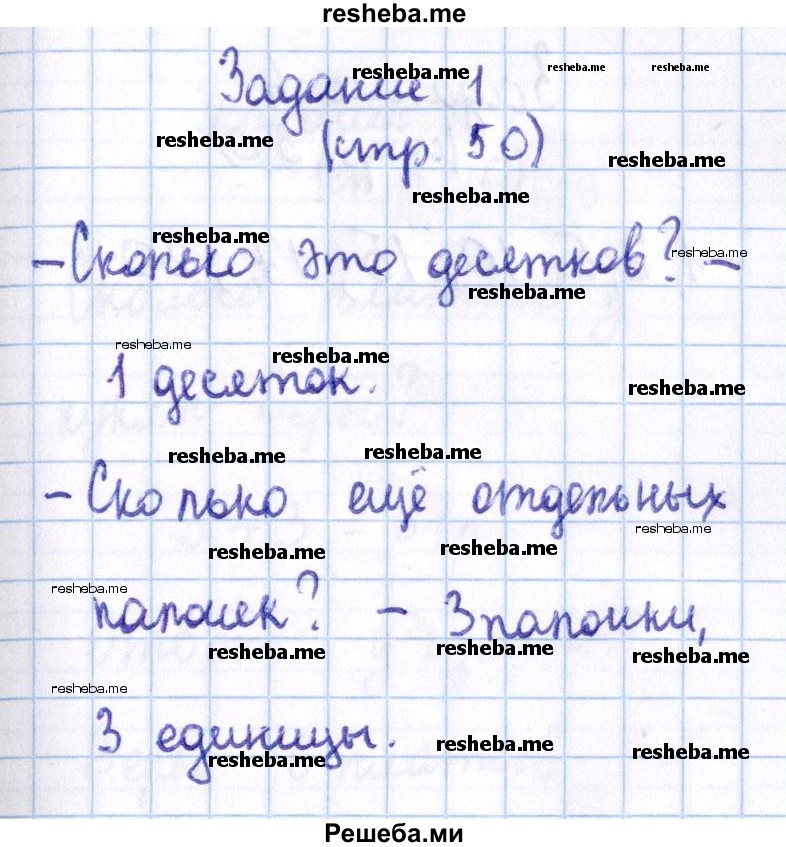 resheba.me
resheba.me resheba.me resheba.me
Задание 1
resheba.me
(стр. 50)
resheba.me
resheba.me
resheba.me
– Сколько это десятков? –
resheba.me
resheba.me
resheba.me
resheba.me
1 десяток.
resheba.me
resheba.me
resheba.me
– Сколько ещё отдельных
resheba.me
resheba.me
resheba.me
resheba.me
палочек? – 3 палочки,
resheba.me
resheba.me
resheba.me
resheba.me
3 единицы.
resheba.me
resheba.me
resheba.me
Решеба.ми